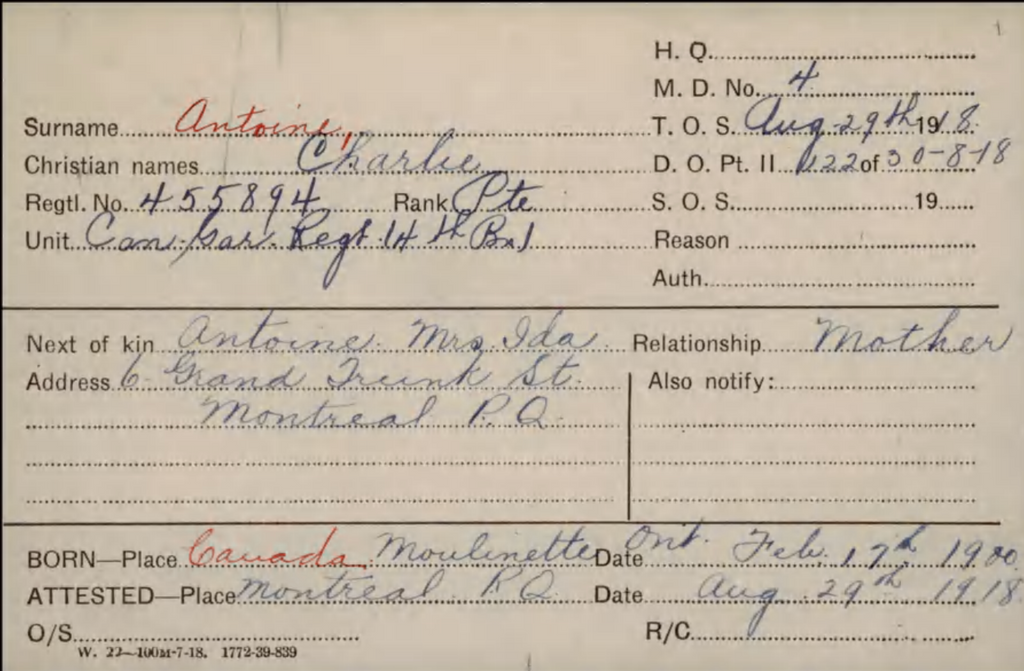 H. Q.
M. D. No. 4
Surname Antoine, T. O. S. Aug 29th 1918
Christian names Charlie D. O. Pt. II 122 of 30-8-18
Regtl. No. 455894 Rank Pte S. O. S. 19
Unit Can. Gar. Regt. 14th Bn Reason
Auth.
Next of kin Antoine Mrs Ida Relationship Mother
Address 6 Grand Trunk St. Also notify:
Montreal P. Q.
BORN—Place Canada Moulinette Ont. Date Feb. 17th 1900
ATTESTED—Place Montreal P. Q. Date Aug 29th 1918
O/S R/C
W. 22—100M-7-18. 1772-39-839